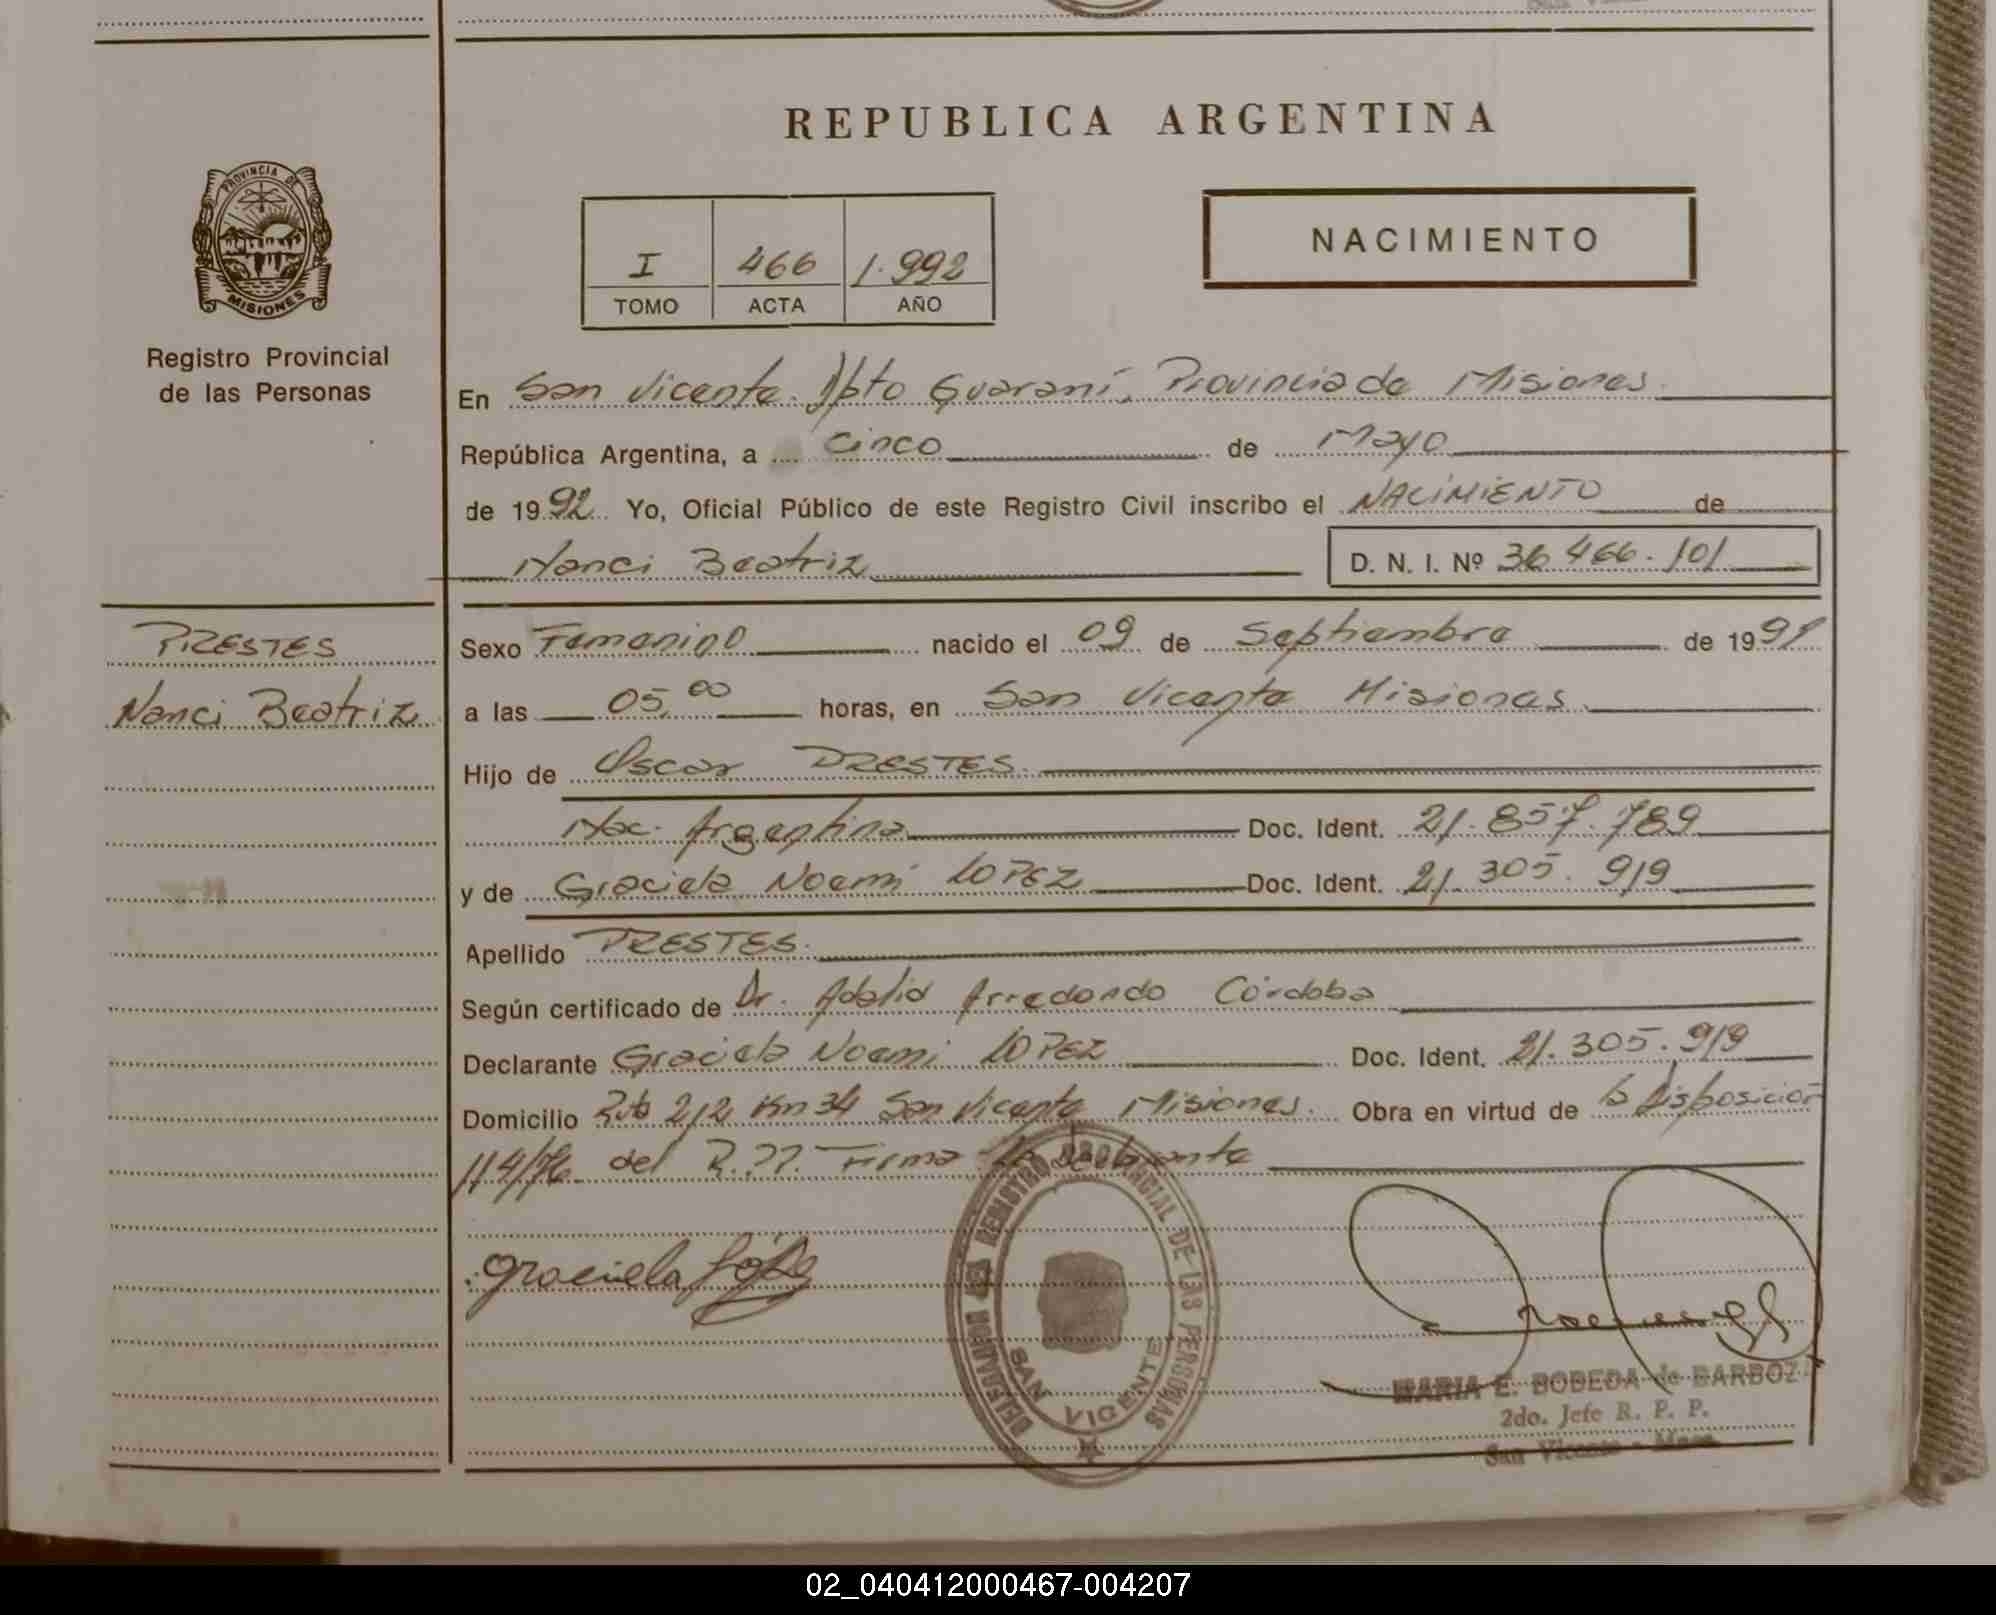 REPUBLICA ARGENTINA
PROVINCIA DE
MISIONES
Registro Provincial
de las Personas
I 466 1.992
TOMO ACTA AÑO
NACIMIENTO
En San Vicente Dpto Guaraní, Provincia de Misiones.
República Argentina, a Cinco de Mayo
de 1992 Yo, Oficial Público de este Registro Civil inscribo el NACIMIENTO de
Nanci Beatriz D. N. I. Nº 36.466.101
PRESTES
Nanci Beatriz
Sexo Femenino nacido el 09 de Septiembre de 1991
a las 05,00 horas, en San Vicente Misiones
Hijo de Oscar PRESTES
Nac. Argentina Doc. Ident. 21.857.789
y de Graciela Noemi LOPEZ Doc. Ident. 21.305.919
Apellido PRESTES
Según certificado de Dr. Adalid Arredondo Córdoba
Declarante Graciela Noemi LOPEZ Doc. Ident. 21.305.919
Domicilio Ruta 212 Km 34 San Vicente Misiones. Obra en virtud de la Disposición
114/76 del R.PP. Firma la declarante
Graciela López
REGISTRO PROVINCIAL DE LAS PERSONAS
SAN VICENTE
MARIA E. BOBEDA de BARBOZ
2do. Jefe R. P. P.
San Vicente - Mnes.
02_040412000467-004207